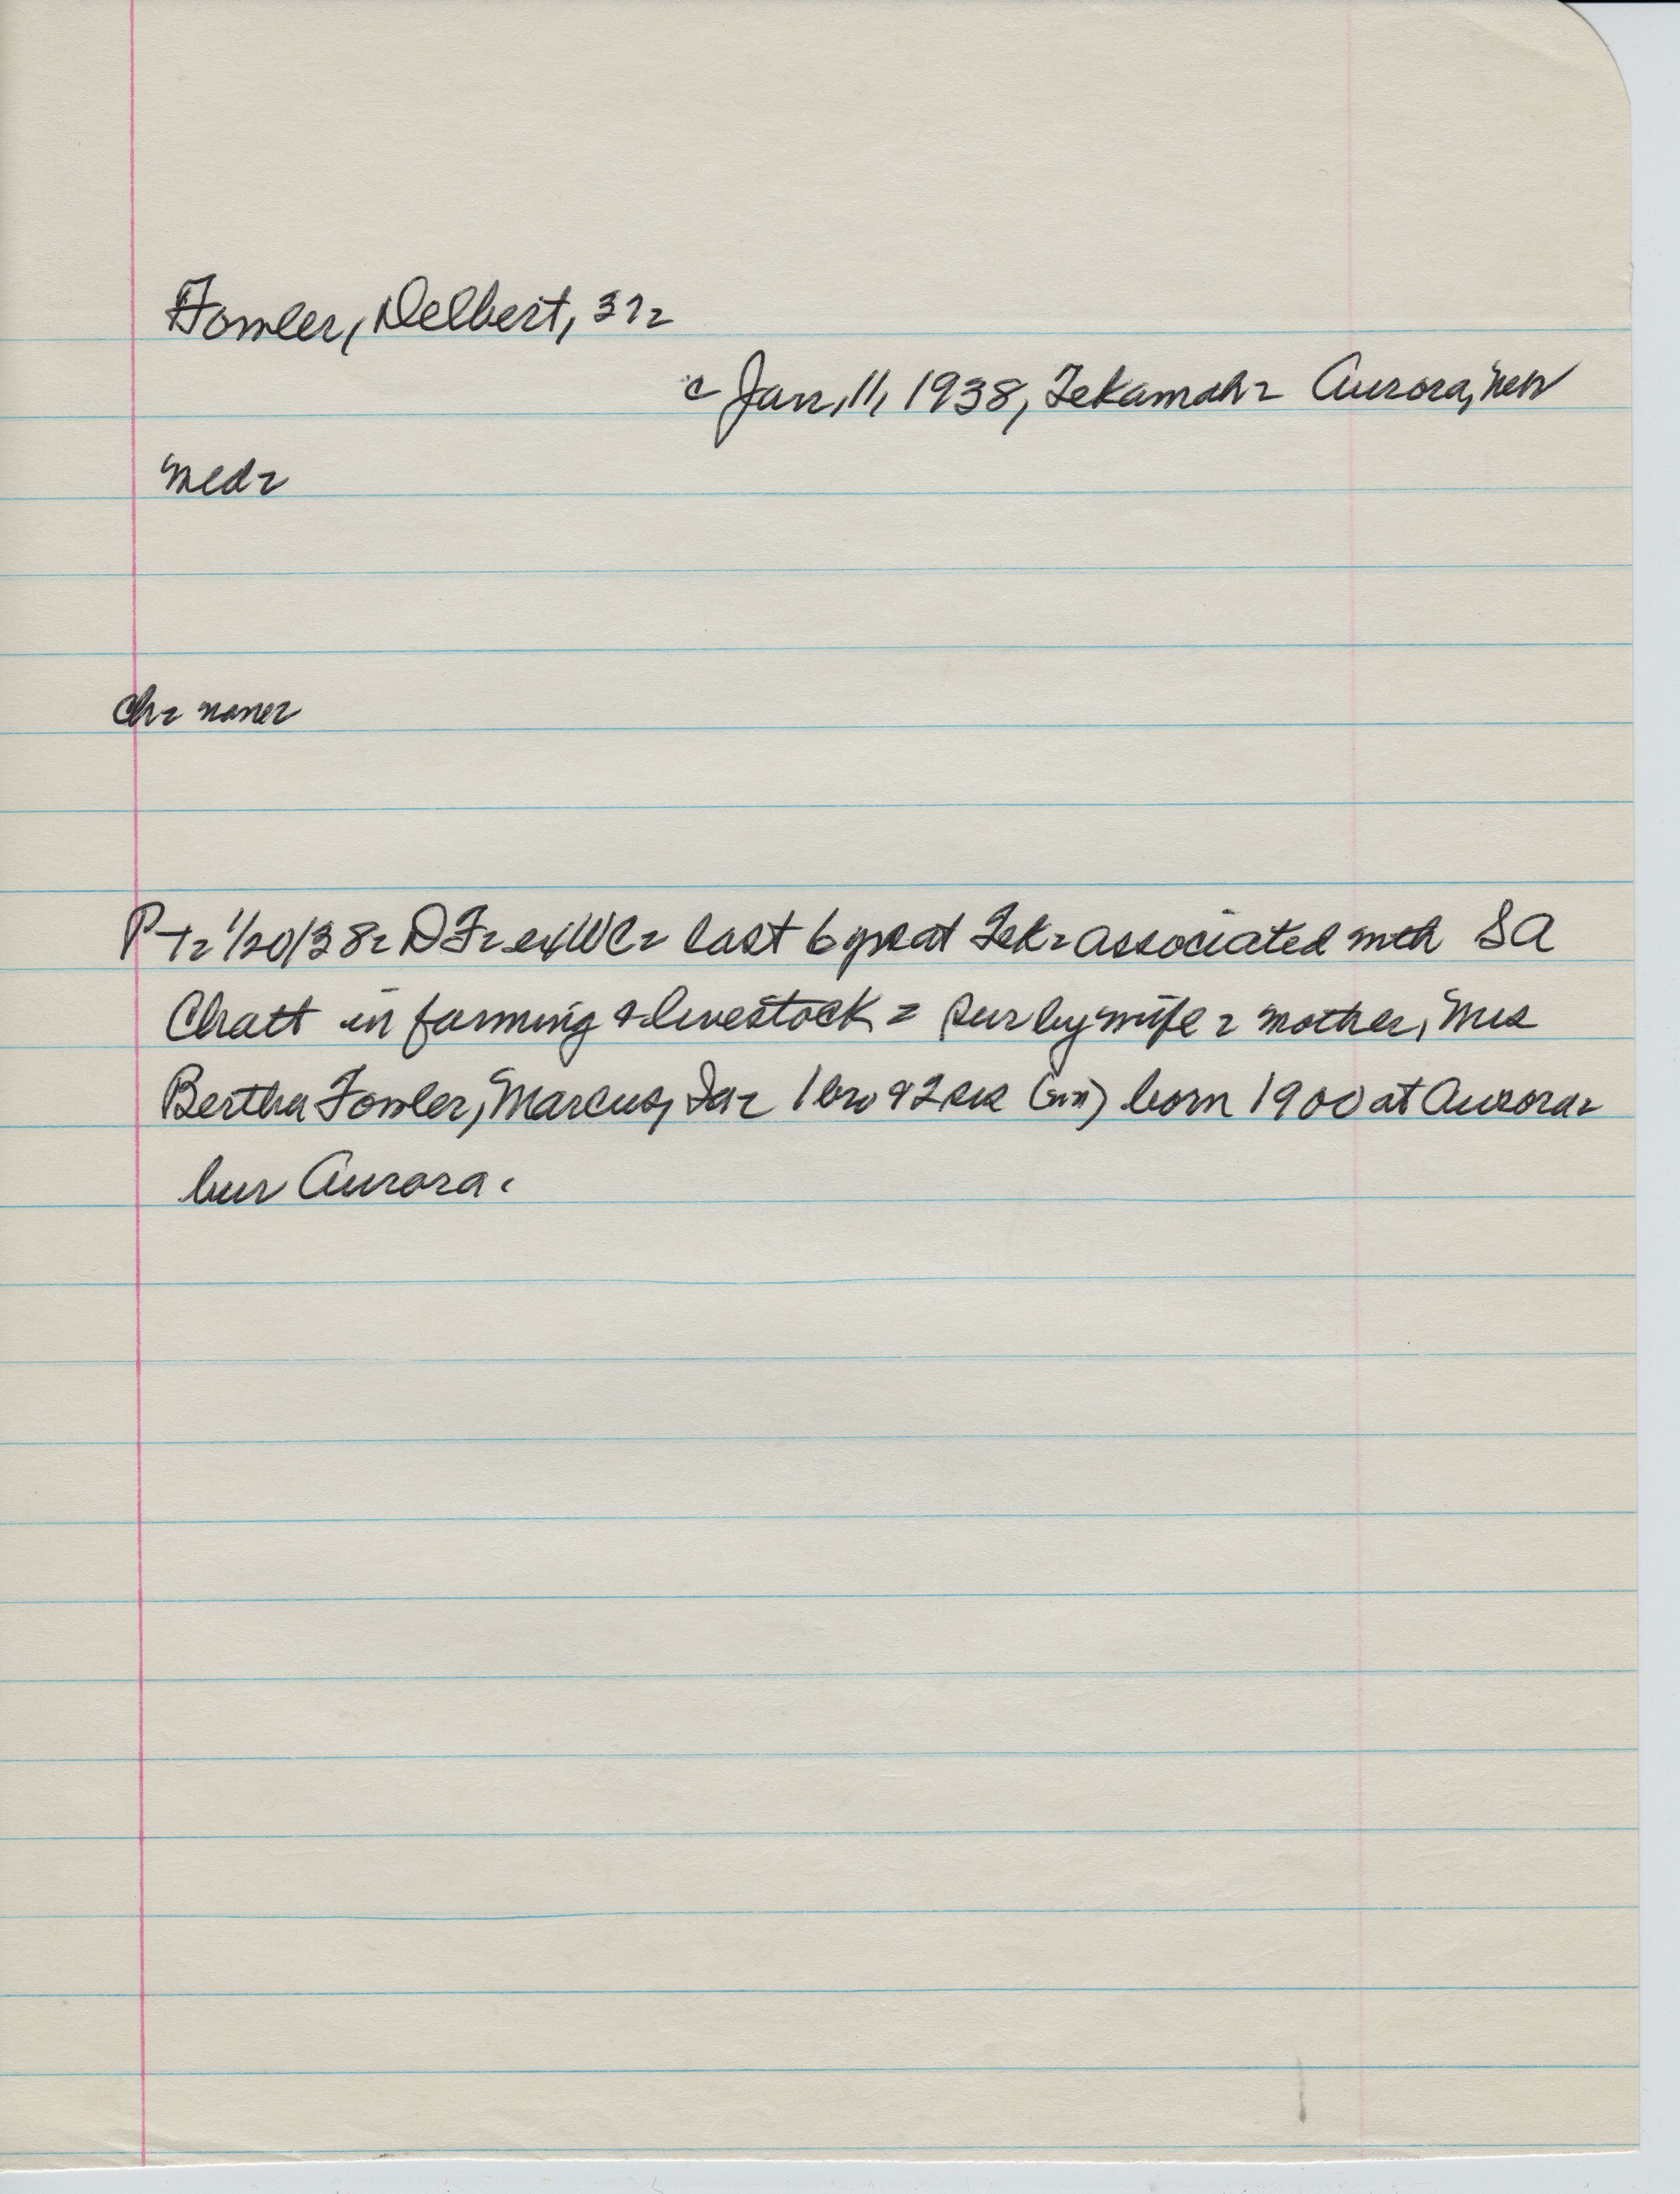 Fowler, Delbert, 37-
c Jan, 11, 1938, Tekamah- Aurora, Neb
Med-
Ch- none-
P T- 1/20/38- DF- ex WC- last 6 yrs at Tek- associated with SA
Chatt in farming & livestock - sur by wife - mother, Mrs
Bertha Fowler, Marcus, Ia- 1 bro & 2 sis (six) born 1900 at Aurora-
bur Aurora.